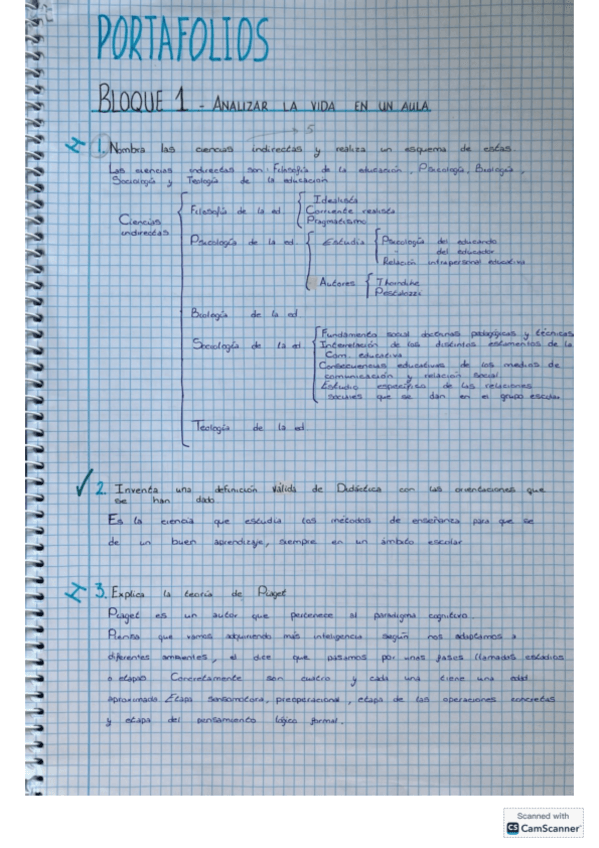 PORTAFOLIOS
BLOQUE 1 - ANALIZAR LA VIDA EN UN AULA
→ 5
1. Nombra las ciencias indirectas y realiza un esquema de estas
Las ciencias indirectas son: Filosofía de la educación, Psicología, Biología,
Sociología y Teología de la educación
Ciencias indirectas
Filosofía de la ed
Idealista
Corriente realista
Pragmatismo
Psicología de la ed.
Estudia
Psicología del educando
del educador
Relación intrapersonal educativa
Autores
Thorndike
Pestalozzi
Biología de la ed
Sociología de la ed
Fundamenta social doctrinas pedagógicas y técnicas
Interrelación de los distintos estamentos de la
Com. educativa
Consecuencias educativas de los medios de
comunicación y relación social
Estudio específico de las relaciones
sociales que se dan en el grupo escolar
Teología de la ed
2. Inventa una definición válida de Didáctica con las orientaciones que
se han dado
Es la ciencia que estudia los métodos de enseñanza para que se
de un buen aprendizaje, siempre en un ámbito escolar
3. Explica la teoría de Piaget
Piaget es un autor que pertenece al paradigma cognitivo.
Piensa que vamos adquiriendo más inteligencia según nos adaptamos a
diferentes ambientes, el dice que pasamos por unas fases llamadas estadios
o etapas Concretamente son cuatro y cada una tiene una edad
aproximada Etapa sensomotora, preoperacional, etapa de las operaciones concretas
y etapa del pensamiento lógico formal.
Scanned with
CS CamScanner